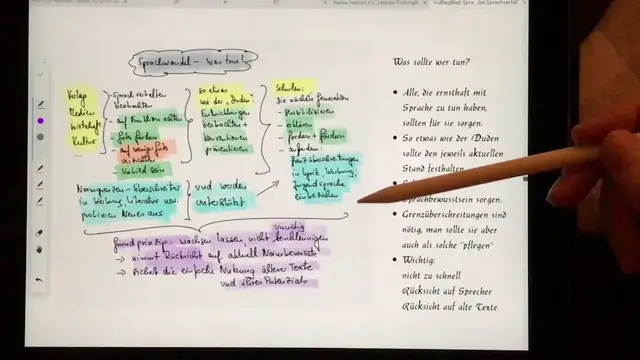 Sprachwandel – was tun?
Verlage
Medien
Wirtschaft
Kultur
...
– Sprachverhalten
beobachten
– auf Funktion achten
– Gutes fördern
– auf weniger Gutes
verzichten
– Vorbild sein
so etwas
wie der "Duden":
Entwicklungen
beobachten +
Konventionen
präsentieren
Schulen:
Die nächste Generation
– sensibilisieren
– erklären
– fordern + fördern
– außerdem:
Grenzüberschreitungen
in Lyrik, Werbung,
Jugendsprache
einbeziehen
Normgrenzen – überschreiten
in Werbung, Literatur usw.
probieren Neues aus
und werden
unterstützt
unnötig
Grundprinzip: wachsen lassen, nicht beschleunigen
→ nimmt Rücksicht auf aktuell Normbewusste
→ sichert die einfache Nutzung älterer Texte
und ihres Potenzials
Was sollte wer tun?
• Alle, die ernsthaft mit
Sprache zu tun haben,
sollten für sie sorgen.
• So etwas wie der Duden
sollte den jeweils aktuellen
Stand festhalten.
Sprachbewusstsein sorgen.
• Grenzüberschreitungen sind
nötig, man sollte sie aber
auch als solche "pflegen"
• Wichtig:
nicht zu schnell
Rücksicht auf Sprecher
Rücksicht auf alte Texte